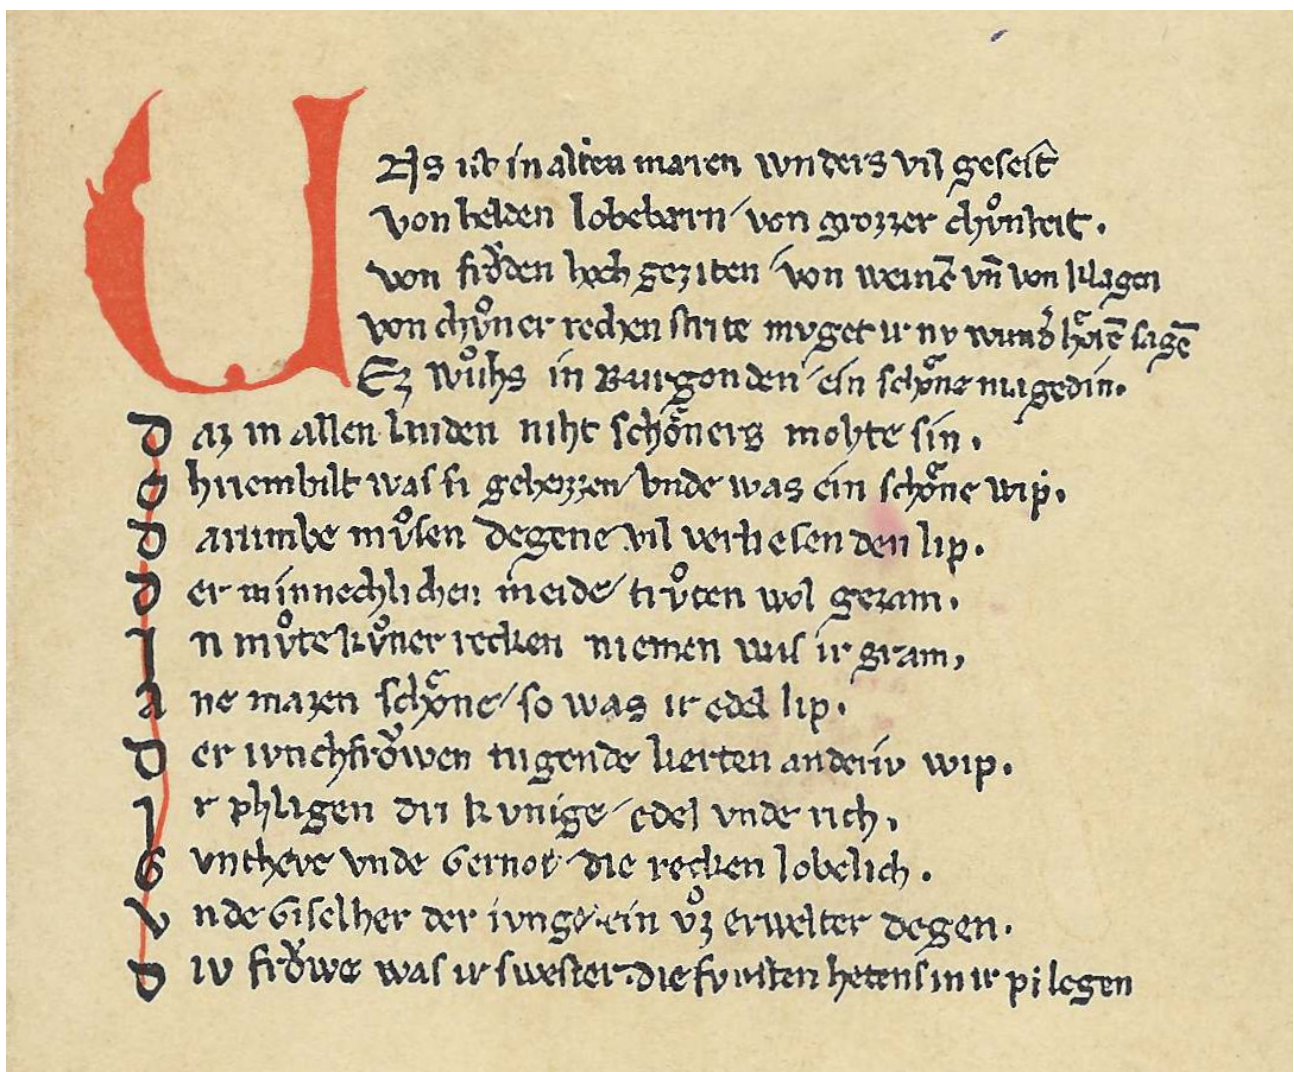 UNs ist in alten maren wnders vil geseit
von helden lobebarn / von grozzer chůnheit.
von frőden hochgeziten / von weinē vn̄ von klagen
von chůner rechen strite mvget ir nv wund͛ hőrē sagē
Ez wůhs in Burgonden / ein schőne magedin.
Daz in allen landen niht schőners mohte sin.
Chriembilt was si geheizzen / vnde was ein schőne wip.
Darumbe můsen degene vil verliesen den lip.
Der minnechlichen meide / trůten wol gezam.
In můte kůner recken niemen was ir gram,
Ane mazen schőne / so was ir edel lip.
Der ivnchfrőwen tugende zierten anderiv wip.
Ir phlagen dri kvnige / edel vnde rich.
Gvnthere vnde Gernot die recken lobelich.
Vnde Giselher der ivnge / ein vz erwelter degen.
Div frőwe was ir swester die fvrsten hetens in ir pflegen